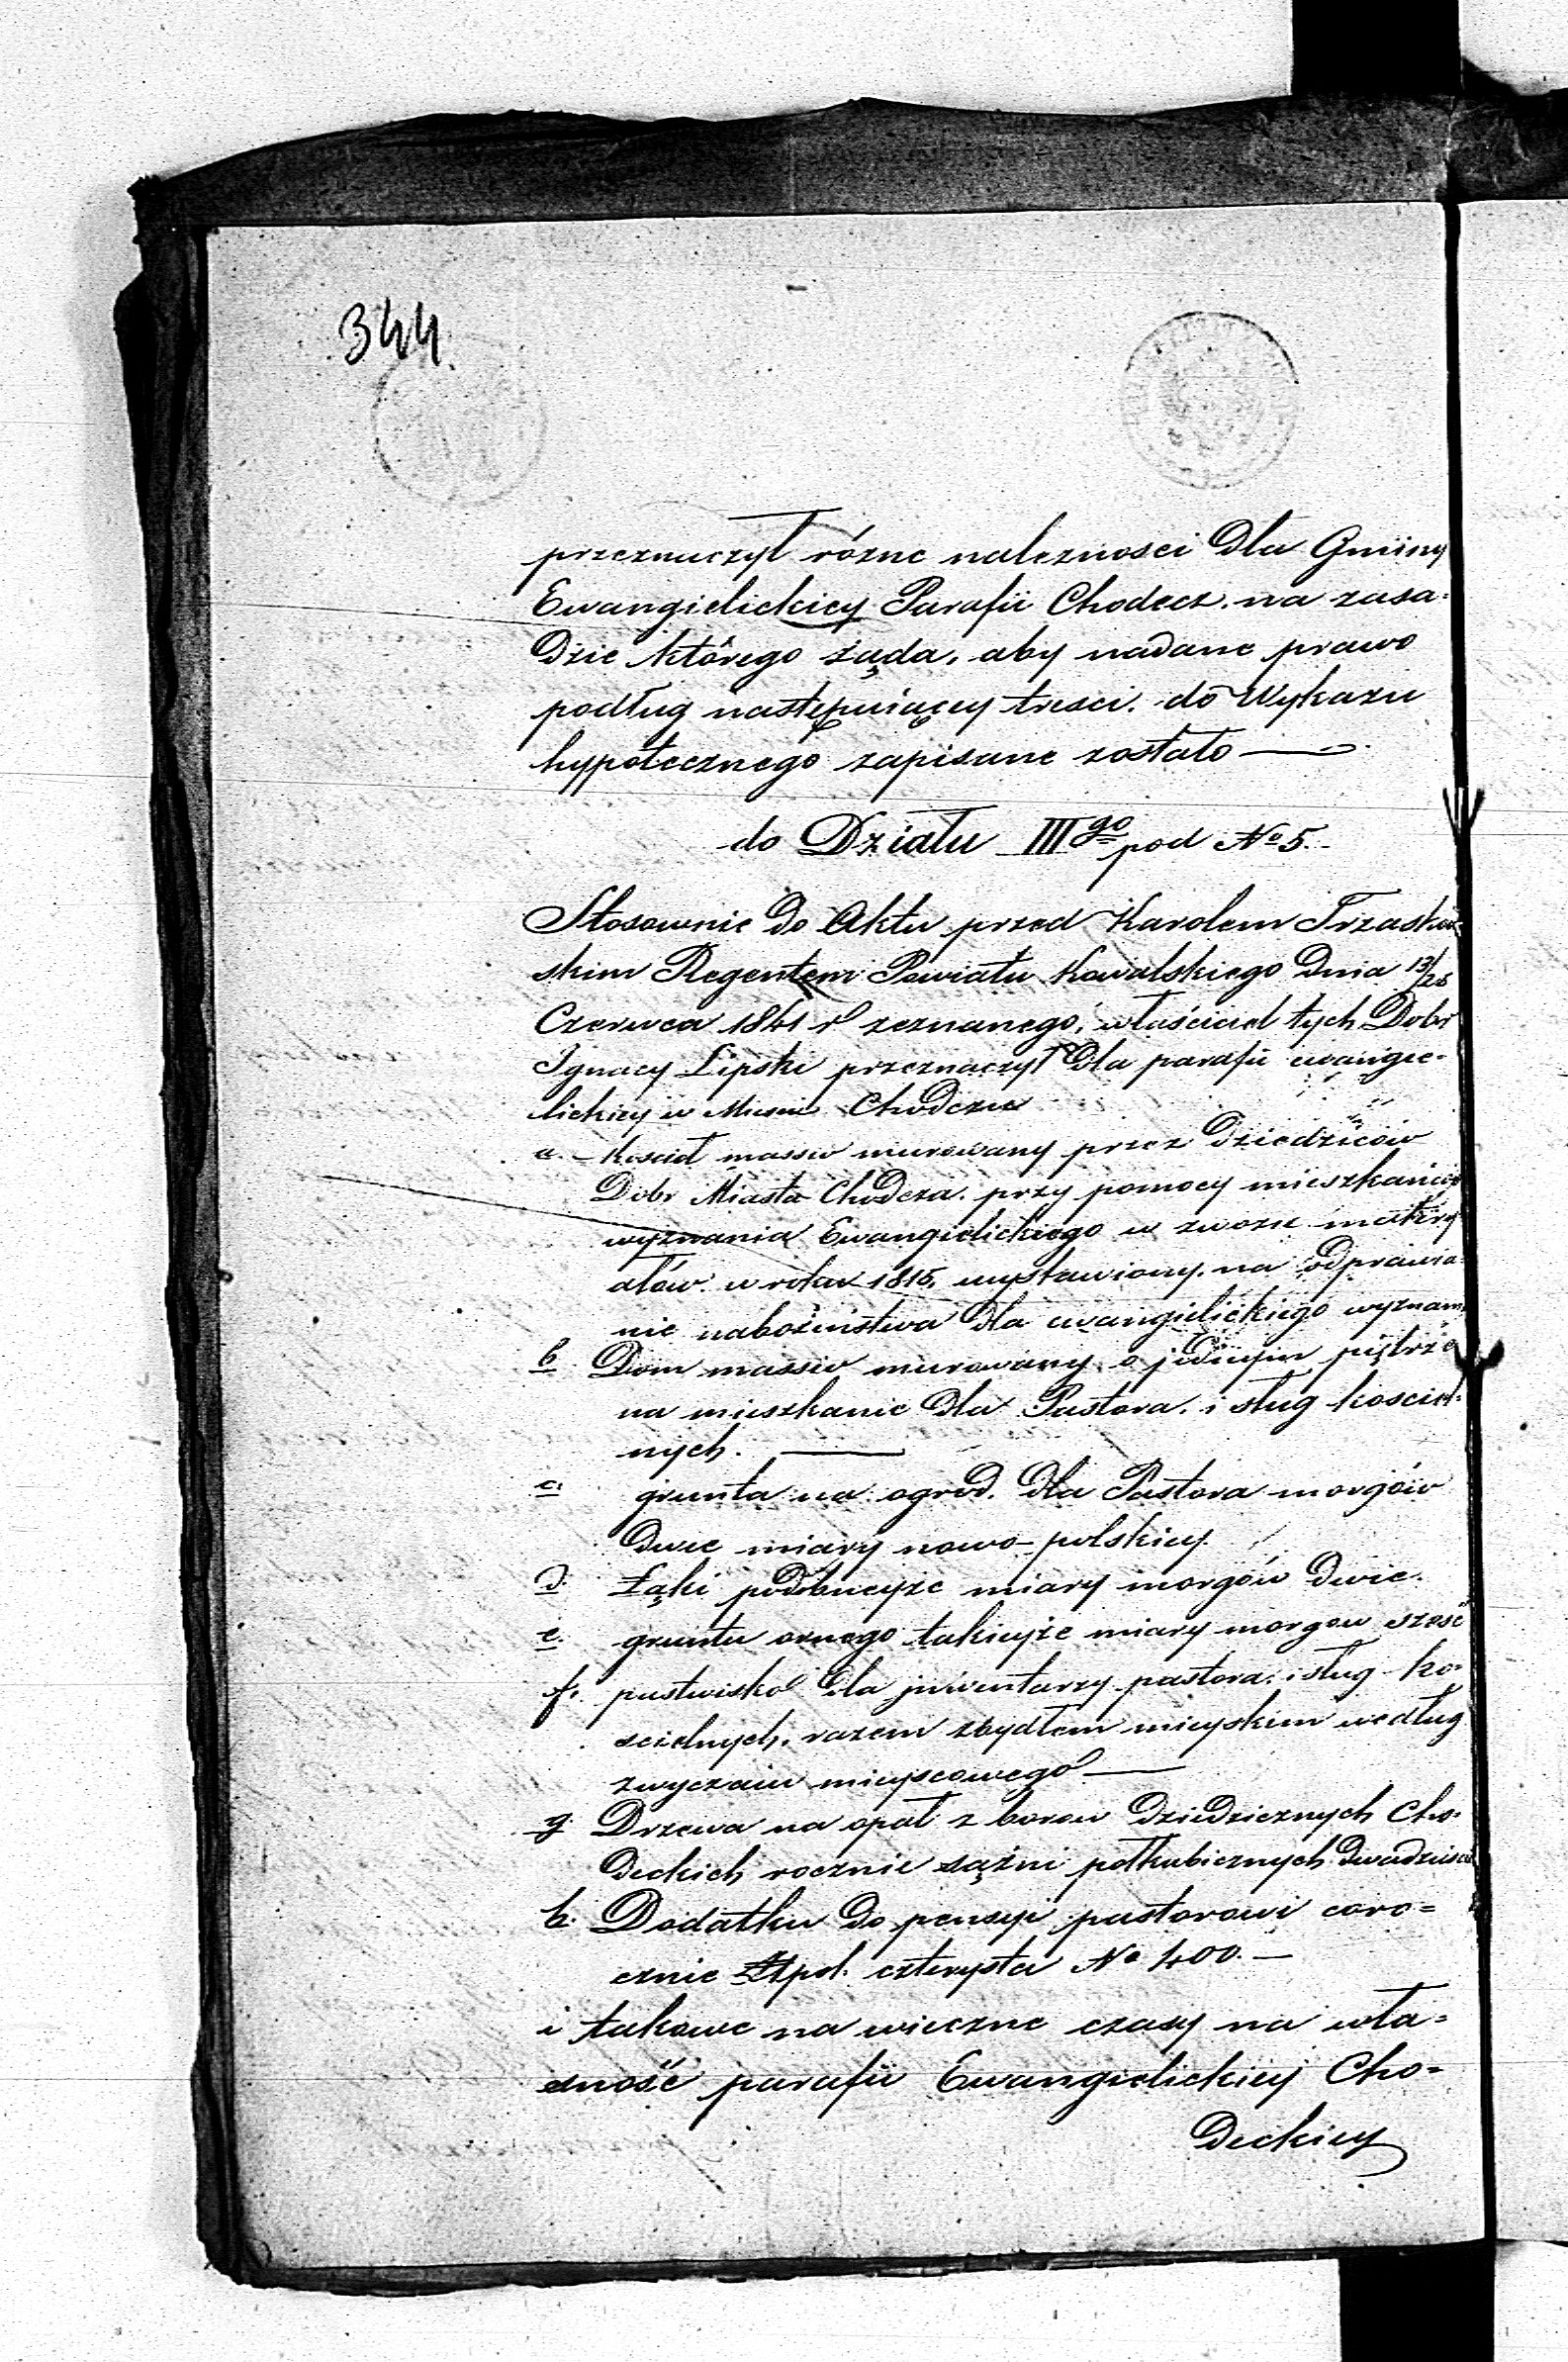 344.
przeznaczył rózne nalezności dla Gminy
Ewangielickiey Parafii Chodecz. na zasa-
dzie którego żąda, aby nadane prawo
podług następuiącey tresci. do Wykazu
hypotecznego zapisane zostało —
do Działu III go pod No 5.
Stosownie do Aktu przed Karolem
skim Regentem Powiatu Kowalskiego dnia 13/25
Czerwca 1841 r zeznanego, właściciel tych Dobr
Ignacy Lipski przeznaczył dla parafii ewangie-
lickiey w Miescie Chodczu
a. Kosciół massiv murowany przez Dziedziców
Dobr Miasta Chodcza. przy pomocy mieszkańców
wyznania Ewangielickiego w zwozie matery-
ałów w roku 1815, wystawiony. na odprawia-
nie nabożenstwa dla ewangielickiego wyznania
b Dom massiv murowany o jednym piętrze
na mieszkanie dla Pastora. i sług kosciel-
nych. —
c. grunta na ogród. dla Pastora morgów
dwie miary nowo-polskiey.
d. Łąki podobneyże miary morgów dwie.
e. gruntu ornego takieyże miary morgow sześć
f. pastwisko dla inwentarzy pastora. i sług ko-
scielnych. razem z bydłem mieyskim według
zwyczaiu mieyscowego —
g. Drzewa na opał z borow dziedzicznych Cho-
deckich rocznie sążni półkubicznych dwadzieścia
h. Dodatku do pensyi pastorowi coro=
cznie Złpol. czterysta No 400. —
i takowe na wieczne czasy na wła=
sność parafii Ewangielickiej Cho=
deckiey